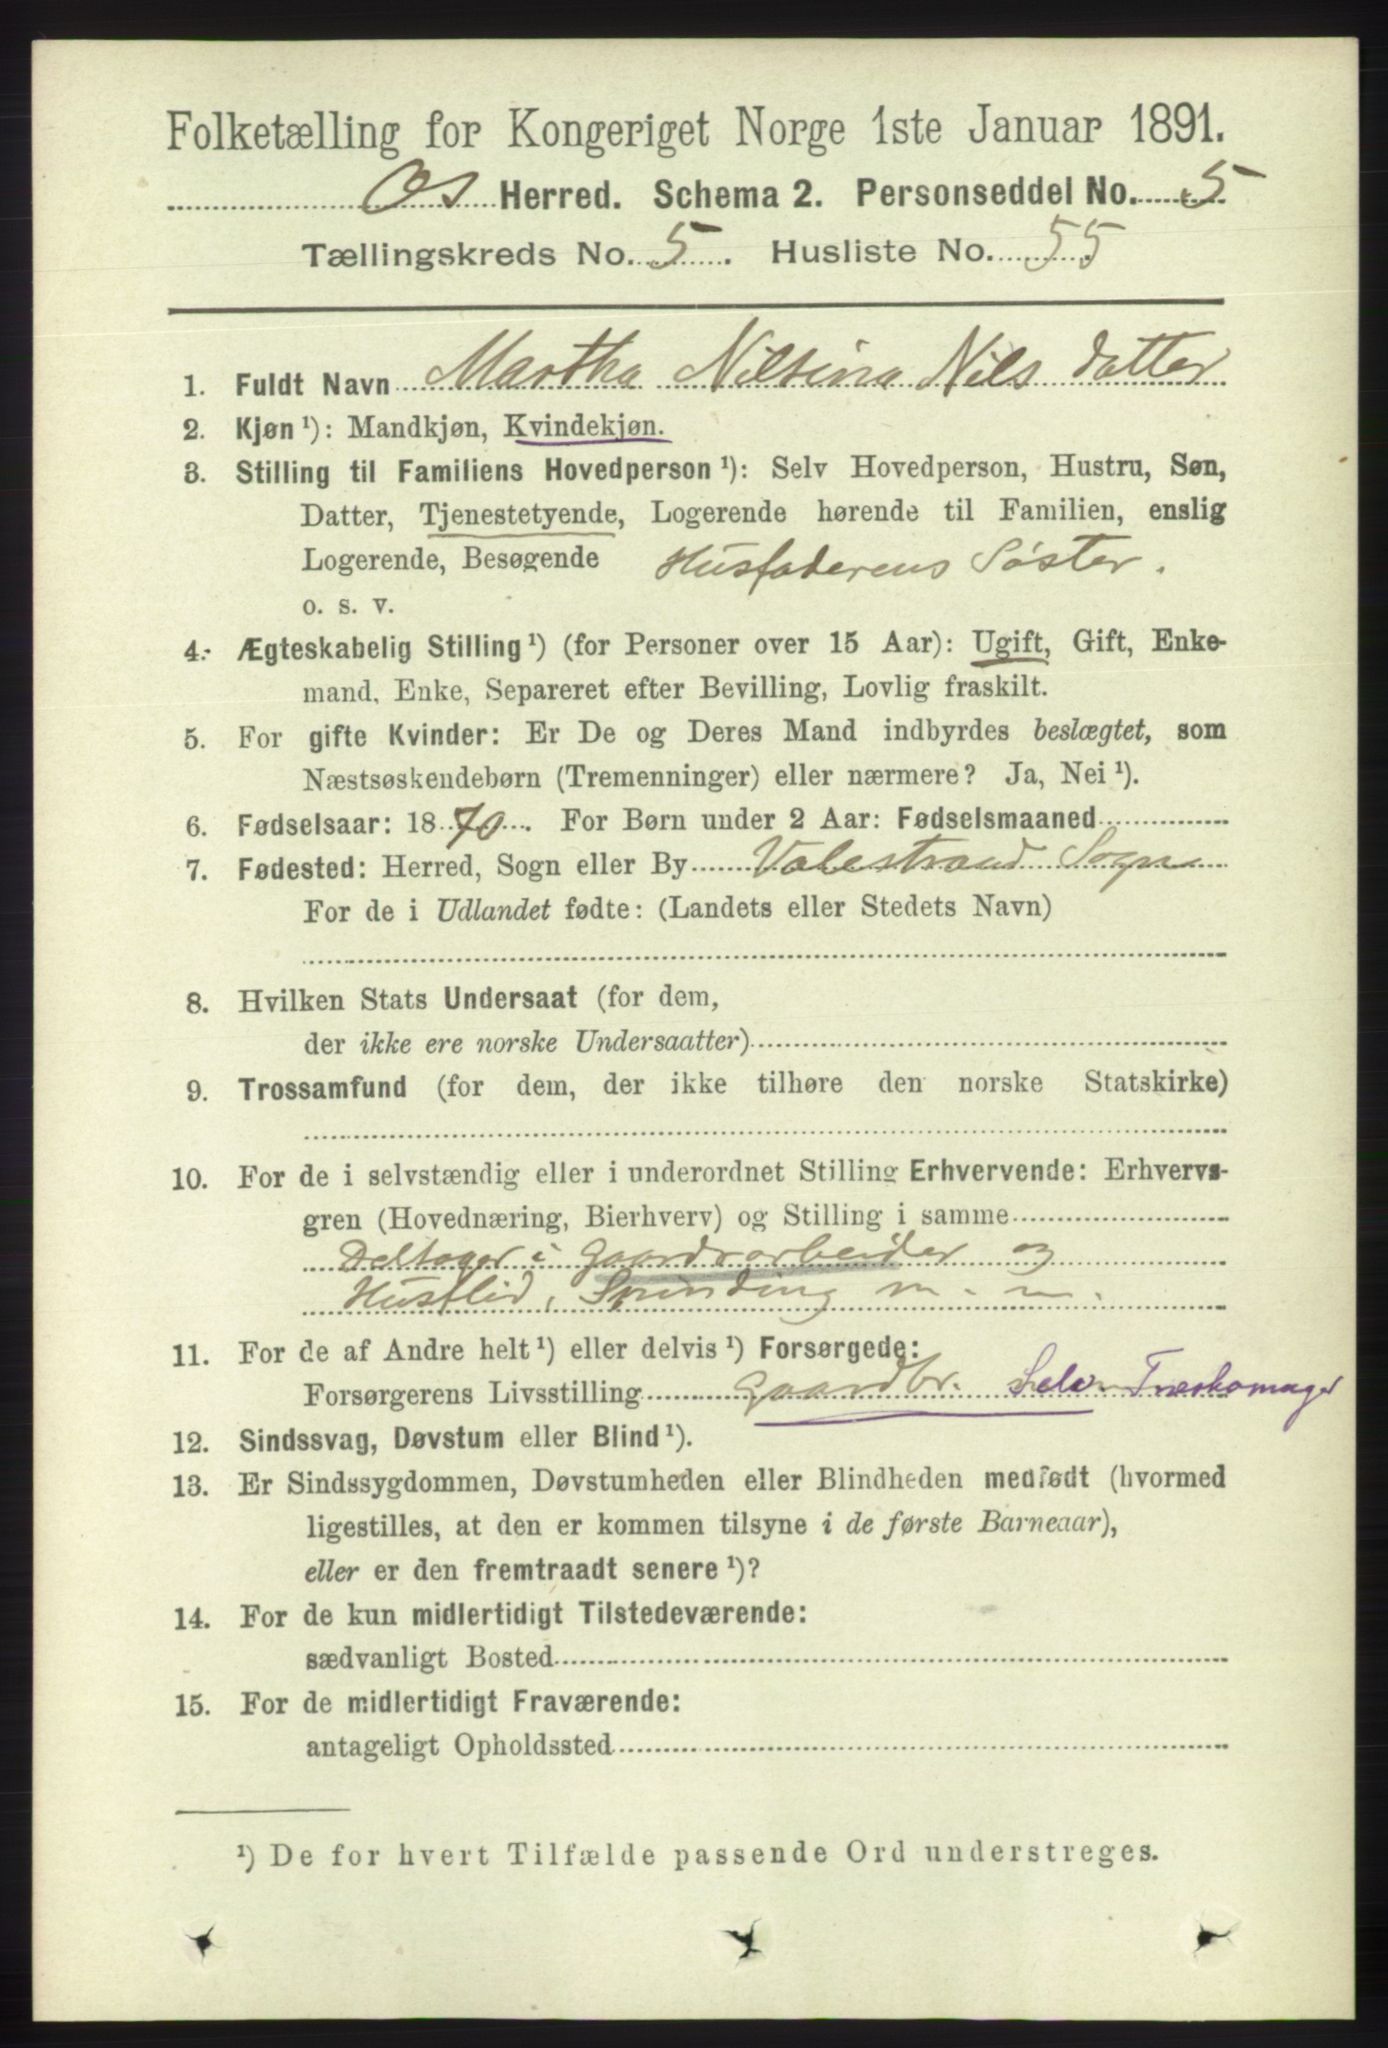 Folketælling for Kongeriget Norge 1ste Januar 1891.
Os Herred. Schema 2. Personseddel No. 5
Tællingskreds No. 5. Husliste No. 55
1. Fuldt Navn Martha Niltina Nils datter
2. Kjøn ¹): Mandkjøn, Kvindekjøn.
3. Stilling til Familiens Hovedperson ¹): Selv Hovedperson, Hustru, Søn,
Datter, Tjenestetyende, Logerende hørende til Familien, enslig
Logerende, Besøgende Husfaderens Søster.
o. s. v.
4. Ægteskabelig Stilling ¹) (for Personer over 15 Aar): Ugift, Gift, Enke-
mand, Enke, Separeret efter Bevilling, Lovlig fraskilt.
5. For gifte Kvinder: Er De og Deres Mand indbyrdes beslægtet, som
Næstsøskendebørn (Tremenninger) eller nærmere? Ja, Nei ¹).
6. Fødselsaar: 1870. For Børn under 2 Aar: Fødselsmaaned
7. Fødested: Herred, Sogn eller By Valestrand Sogn
For de i Udlandet fødte: (Landets eller Stedets Navn)
8. Hvilken Stats Undersaat (for dem,
der ikke ere norske Undersaatter)
9. Trossamfund (for dem, der ikke tilhøre den norske Statskirke)
10. For de i selvstændig eller i underordnet Stilling Erhvervende: Erhvervs-
gren (Hovednæring, Bierhverv) og Stilling i samme
Deltager i Gaardsarbeider og
Husflid, Spinding m. m.
11. For de af Andre helt ¹) eller delvis ¹) Forsørgede:
Forsørgerens Livsstilling Gaardbr. Selv. Træskomager
12. Sindssvag, Døvstum eller Blind ¹).
13. Er Sindssygdommen, Døvstumheden eller Blindheden medfødt (hvormed
ligestilles, at den er kommen tilsyne i de første Barneaar),
eller er den fremtraadt senere ¹)?
14. For de kun midlertidigt Tilstedeværende:
sædvanligt Bosted
15. For de midlertidigt Fraværende:
antageligt Opholdssted
¹) De for hvert Tilfælde passende Ord understreges.